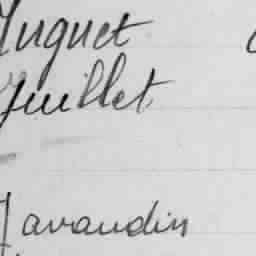 Huguet
Juillet
Javaudin